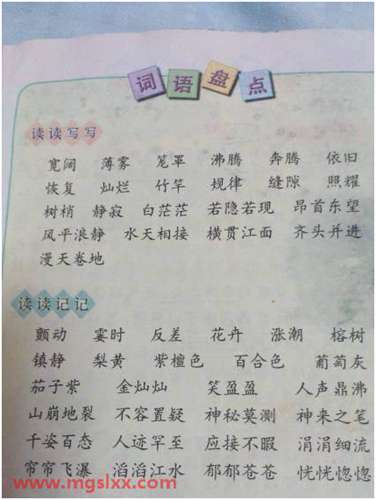 词语盘点
读读写写
宽阔 薄雾 笼罩 沸腾 奔腾 依旧
恢复 灿烂 竹竿 规律 缝隙 照耀
树梢 静寂 白茫茫 若隐若现 昂首东望
风平浪静 水天相接 横贯江面 齐头并进
漫天卷地
读读记记
颤动 霎时 反差 花卉 涨潮 榕树
镇静 梨黄 紫檀色 百合色 葡萄灰
茄子紫 金灿灿 笑盈盈 人声鼎沸
山崩地裂 不容置疑 神秘莫测 神来之笔
千姿百态 人迹罕至 应接不暇 涓涓细流
帘帘飞瀑 滔滔江水 郁郁苍苍 恍恍惚惚
www.mgslxx.com